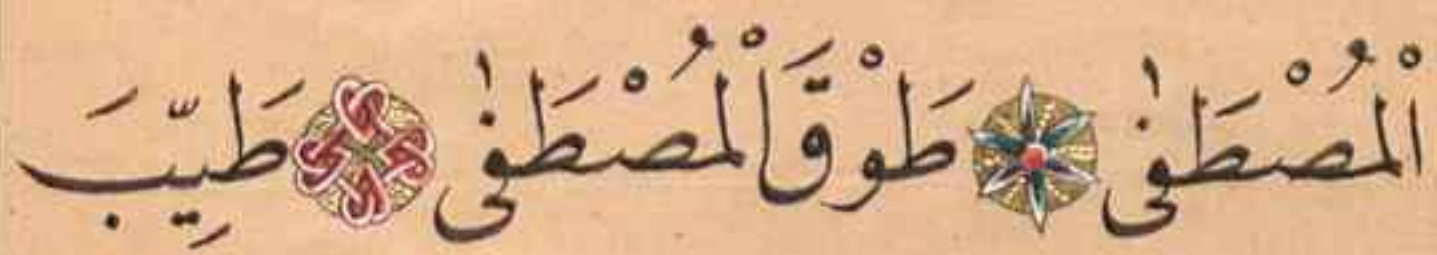 اْلمُصْطَفٰى طَوْقَ اْلمُصْطَفٰى طَيِّبَ